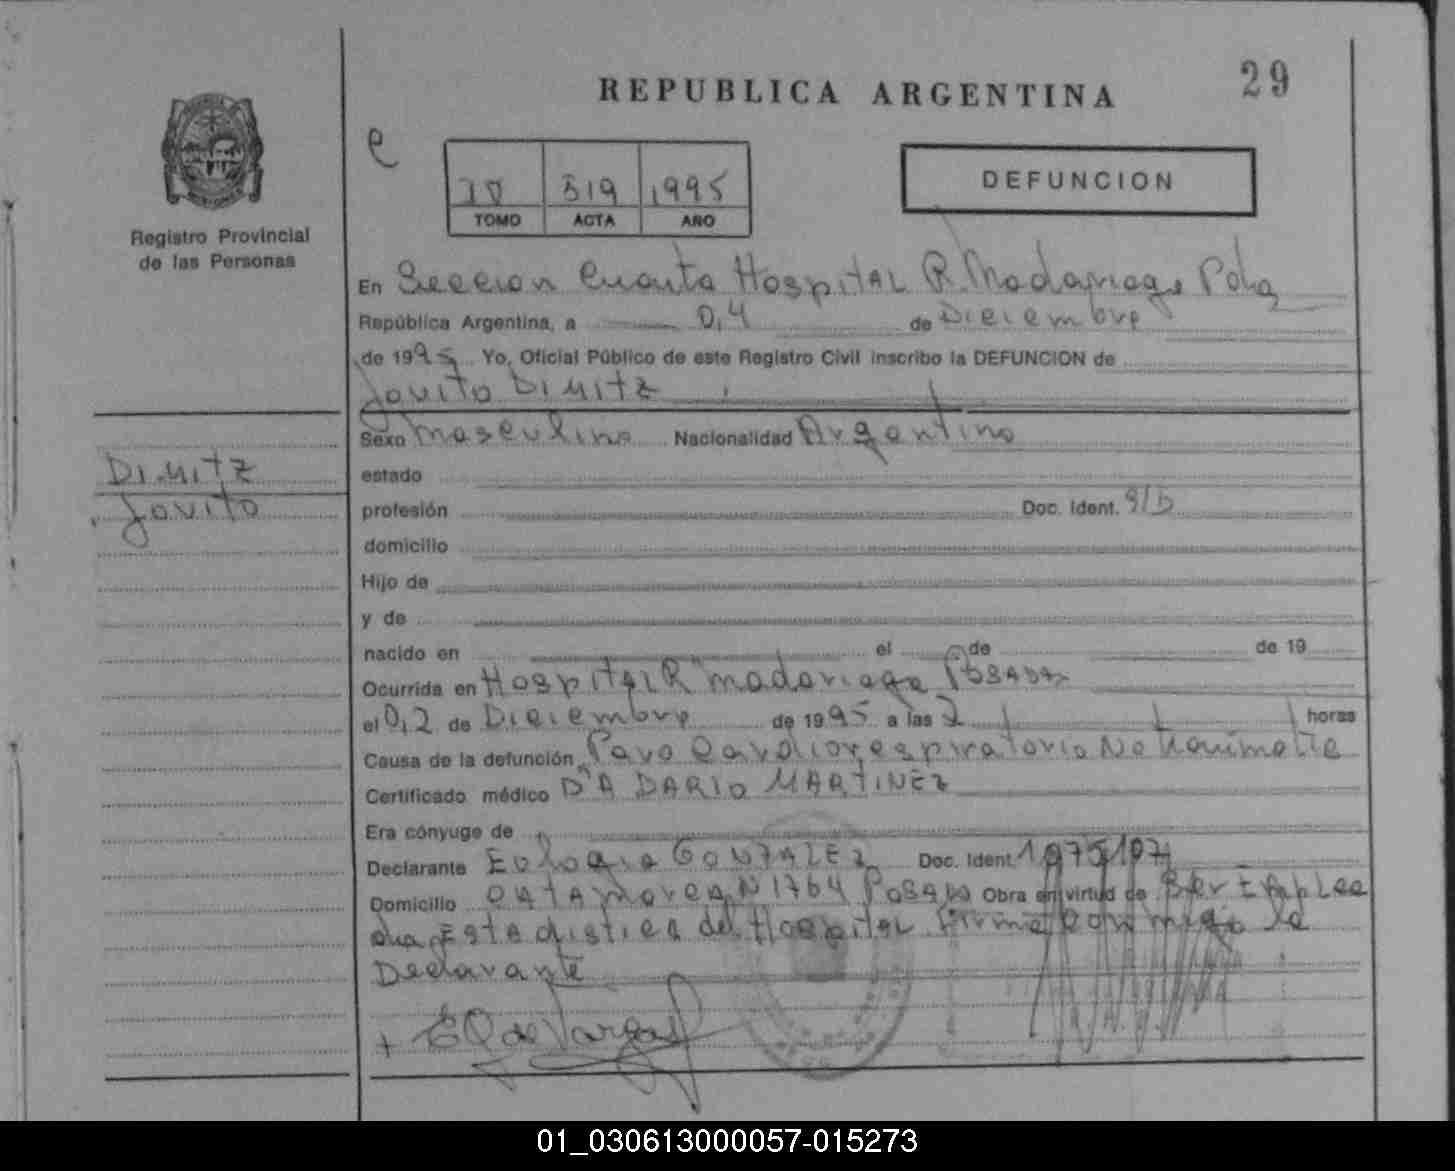 REPUBLICA ARGENTINA
29
Registro Provincial
de las Personas
e
519 1995
TOMO ACTA AÑO
DEFUNCION
En Seccion Cuarta Hospital R. Madariaga
República Argentina, a 04 de Diciembre
de 1995 Yo, Oficial Público de este Registro Civil inscribo la DEFUNCION de
Jovito Dimitz
Sexo Masculino Nacionalidad Argentino
Dimitz
Jovito
estado
profesión Doc. Ident. S/D
domicilio
Hijo de
y de
nacido en el de de 19
Ocurrida en Hospital R Madariaga Posadas
el 02 de Diciembre de 1995 a las 2 horas
Causa de la defunción Paro Cardiorespiratorio No traumatic
Certificado médico DARIO MARTINEZ
Era cónyuge de
Declarante Eulogia GONZALEZ Doc. Ident.
Domicilio CATAMARCA N 1764 Posadas Obra en virtud de Ser Emplea
da Estadistica del Hospital Firma conmigo la
Declarante
+ de Vargas
01_030613000057-015273